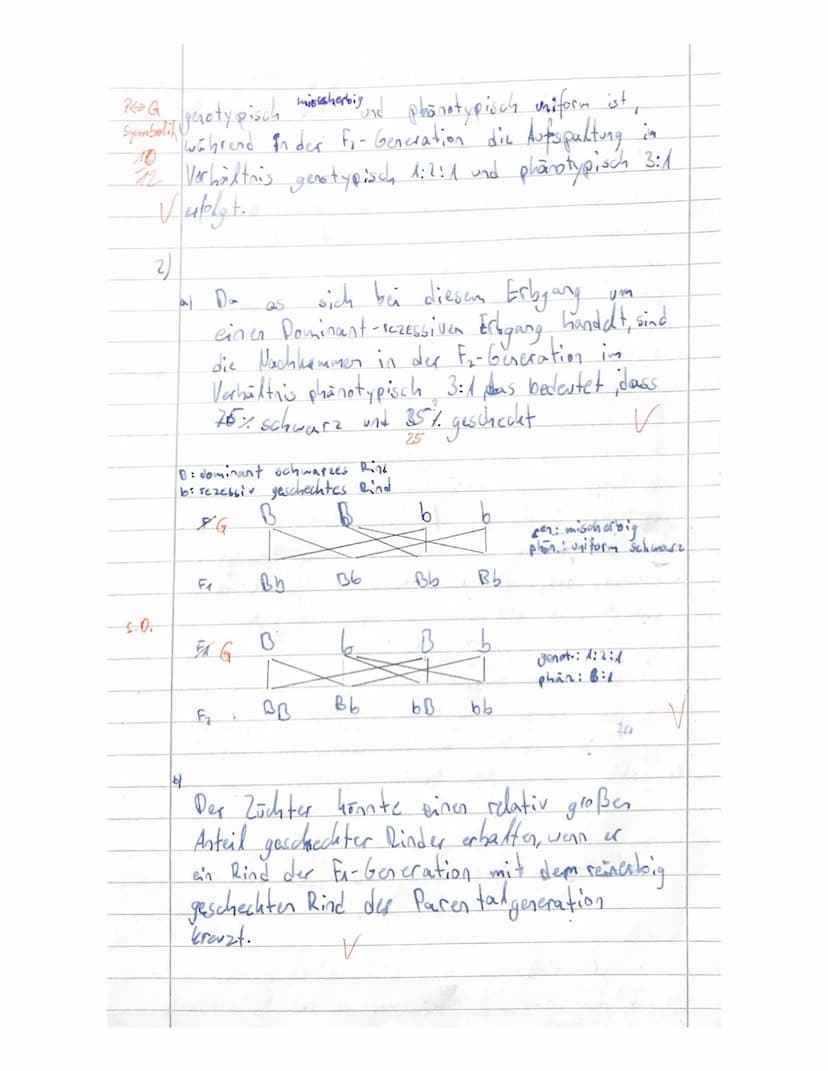 P↔G genotypisch mischerbig und phänotypisch uniform ist,
Symbolik während in der F₁-Generation die Aufspaltung im
10 Verhältnis genotypisch 1:2:1 und phänotypisch 3:1
12 √ erfolgt.
2)
a) Da es sich bei diesem Erbgang um
einen Dominant-rezessiven Erbgang handelt, sind
die Nachkommen in der F₂-Generation im
Verhältnis phänotypisch 3:1, das bedeutet, dass
75% schwarz und 35% gescheckt √
25
D: dominant schwarzes Rind
b: rezessiv geschechtes Rind
G B B b b gen.: mischerbig
phän.: uniform schwarz
F₁ Bb Bb Bb Bb
s.o.
F1 G B b B b genot.: 1:2:1
phän.: 3:1
F₂ BB Bb bB bb √
b)
Der Züchter könnte einen relativ großen
Anteil gescheckter Rinder erhalten, wenn er
ein Rind der F₁-Generation mit dem reinerbig
gescheckten Rind der Parentalgeneration
kreuzt. √